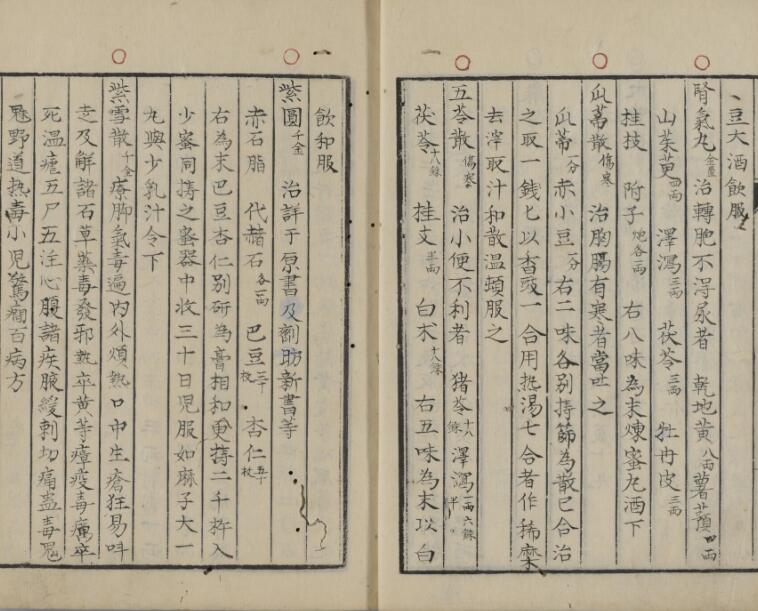 豆大酒飲服
腎氣丸 金匱 治轉胞不淂尿者 乾地黃 八兩 薯蕷 四兩
山茱萸 四兩 澤瀉 三兩 茯苓 三兩 牡丹皮 三兩
桂枝 附子 炮各一兩 右八味為末煉蜜丸酒下
瓜蒂散 傷寒 治胸膈有寒者當吐之
瓜蒂 一分 赤小豆 一分 右二味各別擣篩為散已合治
之取一錢匕以香豉一合用热湯七合煮作稀糜
去滓取汁和散温頓服之
五苓散 傷寒 治小便不利者 猪苓 十八銖 澤瀉 一兩六銖半
茯苓 十八銖 桂支 半兩 白朮 十八銖 右五味為末以白
飲和服
紫圓 千金 治詳于原書及劄肪新書等
赤石脂 代赭石 各一兩 巴豆 三十枚 杏仁 五十枚
右為末巴豆杏仁別研為膏相和更擣二千杵入
少蜜同擣之蜜器中收三十日児服如麻子大一
丸與少乳汁令下
紫雪散 千金 療脚氣毒遍内外煩熱口中生瘡狂易呌
走及解諸石草藥毒發邪熱卒黄等瘴疫毒癘卒
死温瘧五尸五注心腹諸疾腋緩刺切痛蠱毒鬼
魅野道热毒小児驚癇百病方